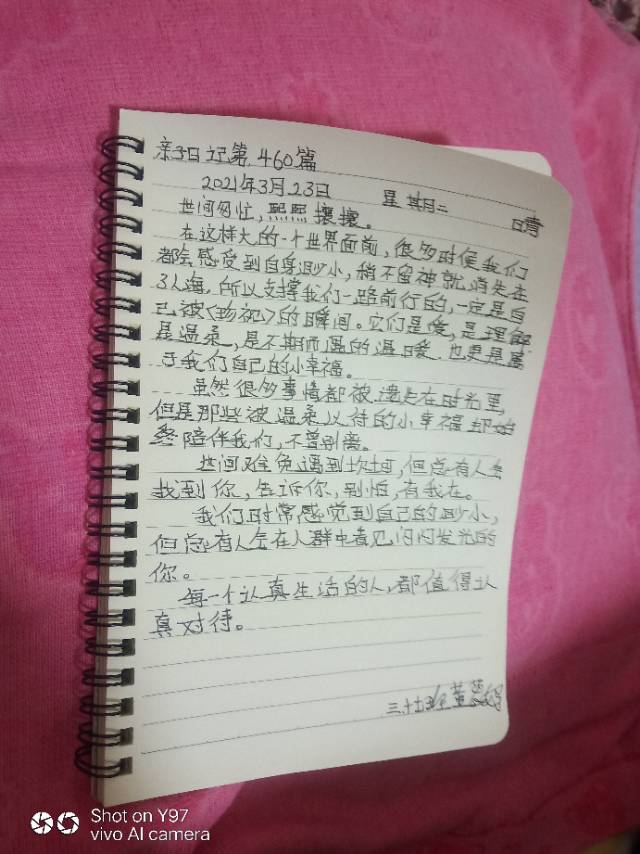 亲子日记第460篇
2021年3月23日 星期二 晴
世间匆忙,熙熙攘攘。
在这样大的一个世界面前,很多时候我们
都会感受到自身渺小,稍不留神就消失在
了人海,所以支撑我们一路前行的,一定是自
己被《珍视》的瞬间。它们是爱,是理解
是温柔,是不期而遇的温暖,也更是属
于我们自己的小幸福。
虽然很多事情都被遗失在时光里,
但是那些被温柔以待的小幸福却始
终陪伴我们,不曾别离。
世间难免遇到坎坷,但总有人会
找到你,告诉你,别怕,有我在。
我们时常感觉到自己的渺小,
但总有人会在人群中看见闪闪发光的
你。
每一个认真生活的人,都值得认
真对待。
三.十
Shot on Y97
vivo AI camera